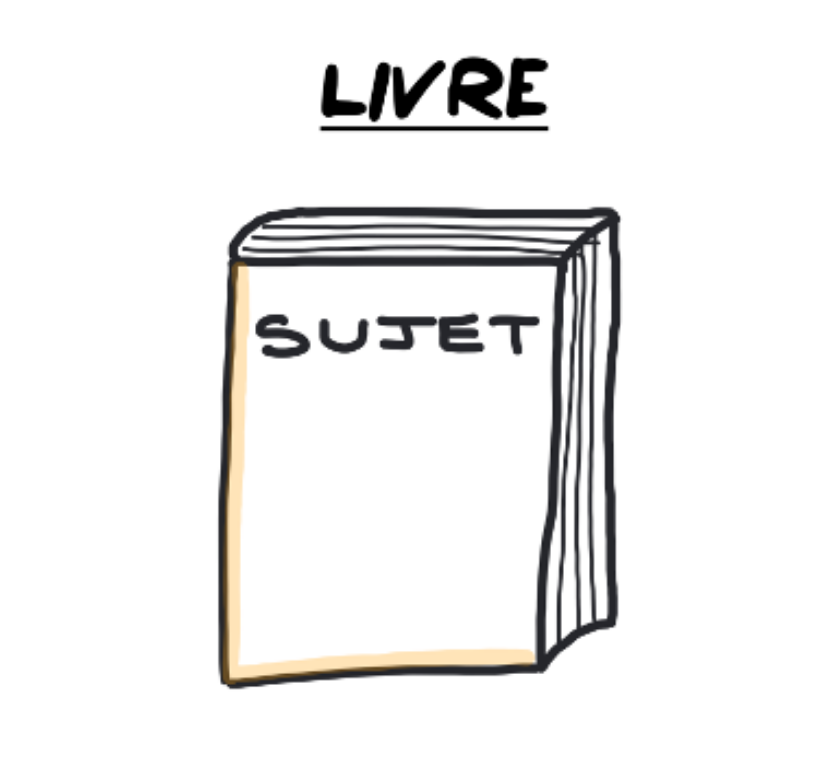 LIVRE
SUJET